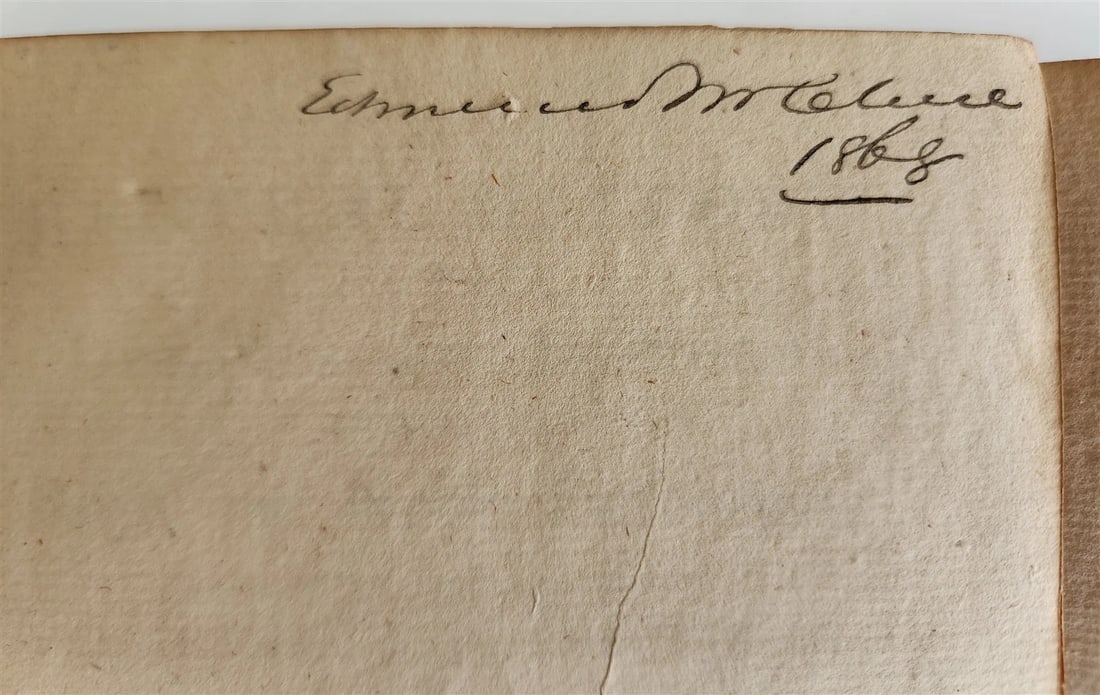 Edmund McClure
1868